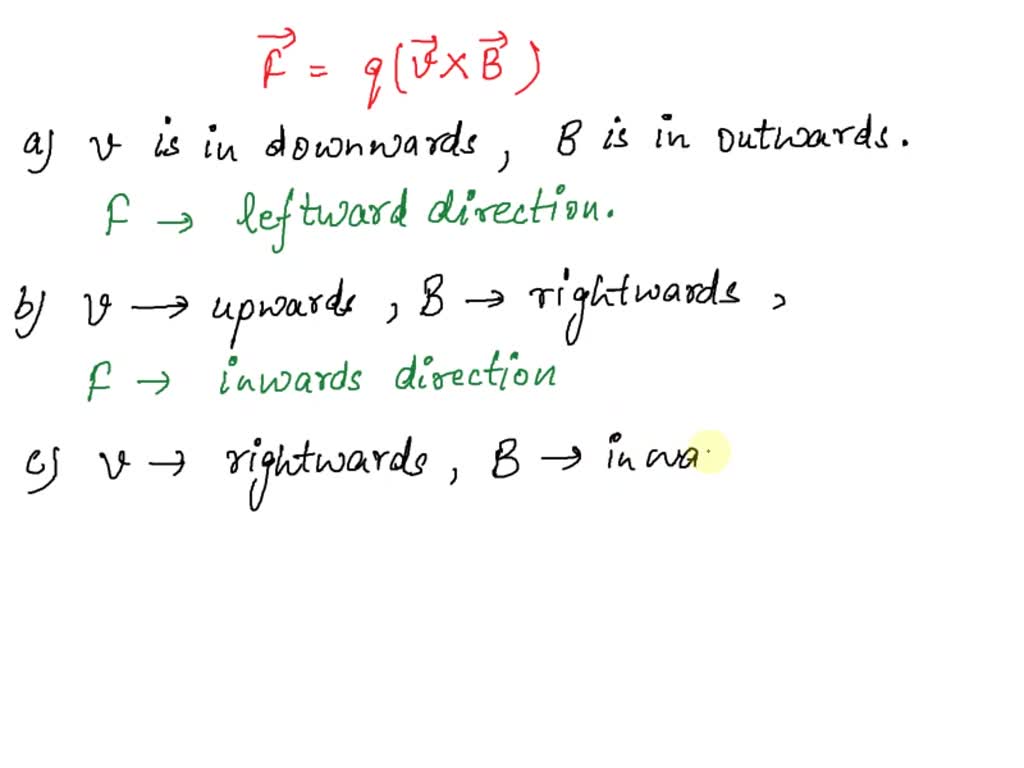 F⃗ = q(v⃗ × B⃗)
a) v is in downwards, B is in outwards.
F → leftward direction.
b) v → upwards, B → rightwards,
F → inwards direction
c) v → rightwards, B → inwa